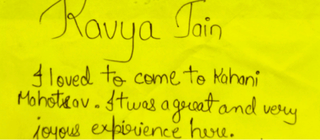 Kavya Jain
I loved to come to Kahani
Mahotsav. It was a great and very
joyous expirience here.